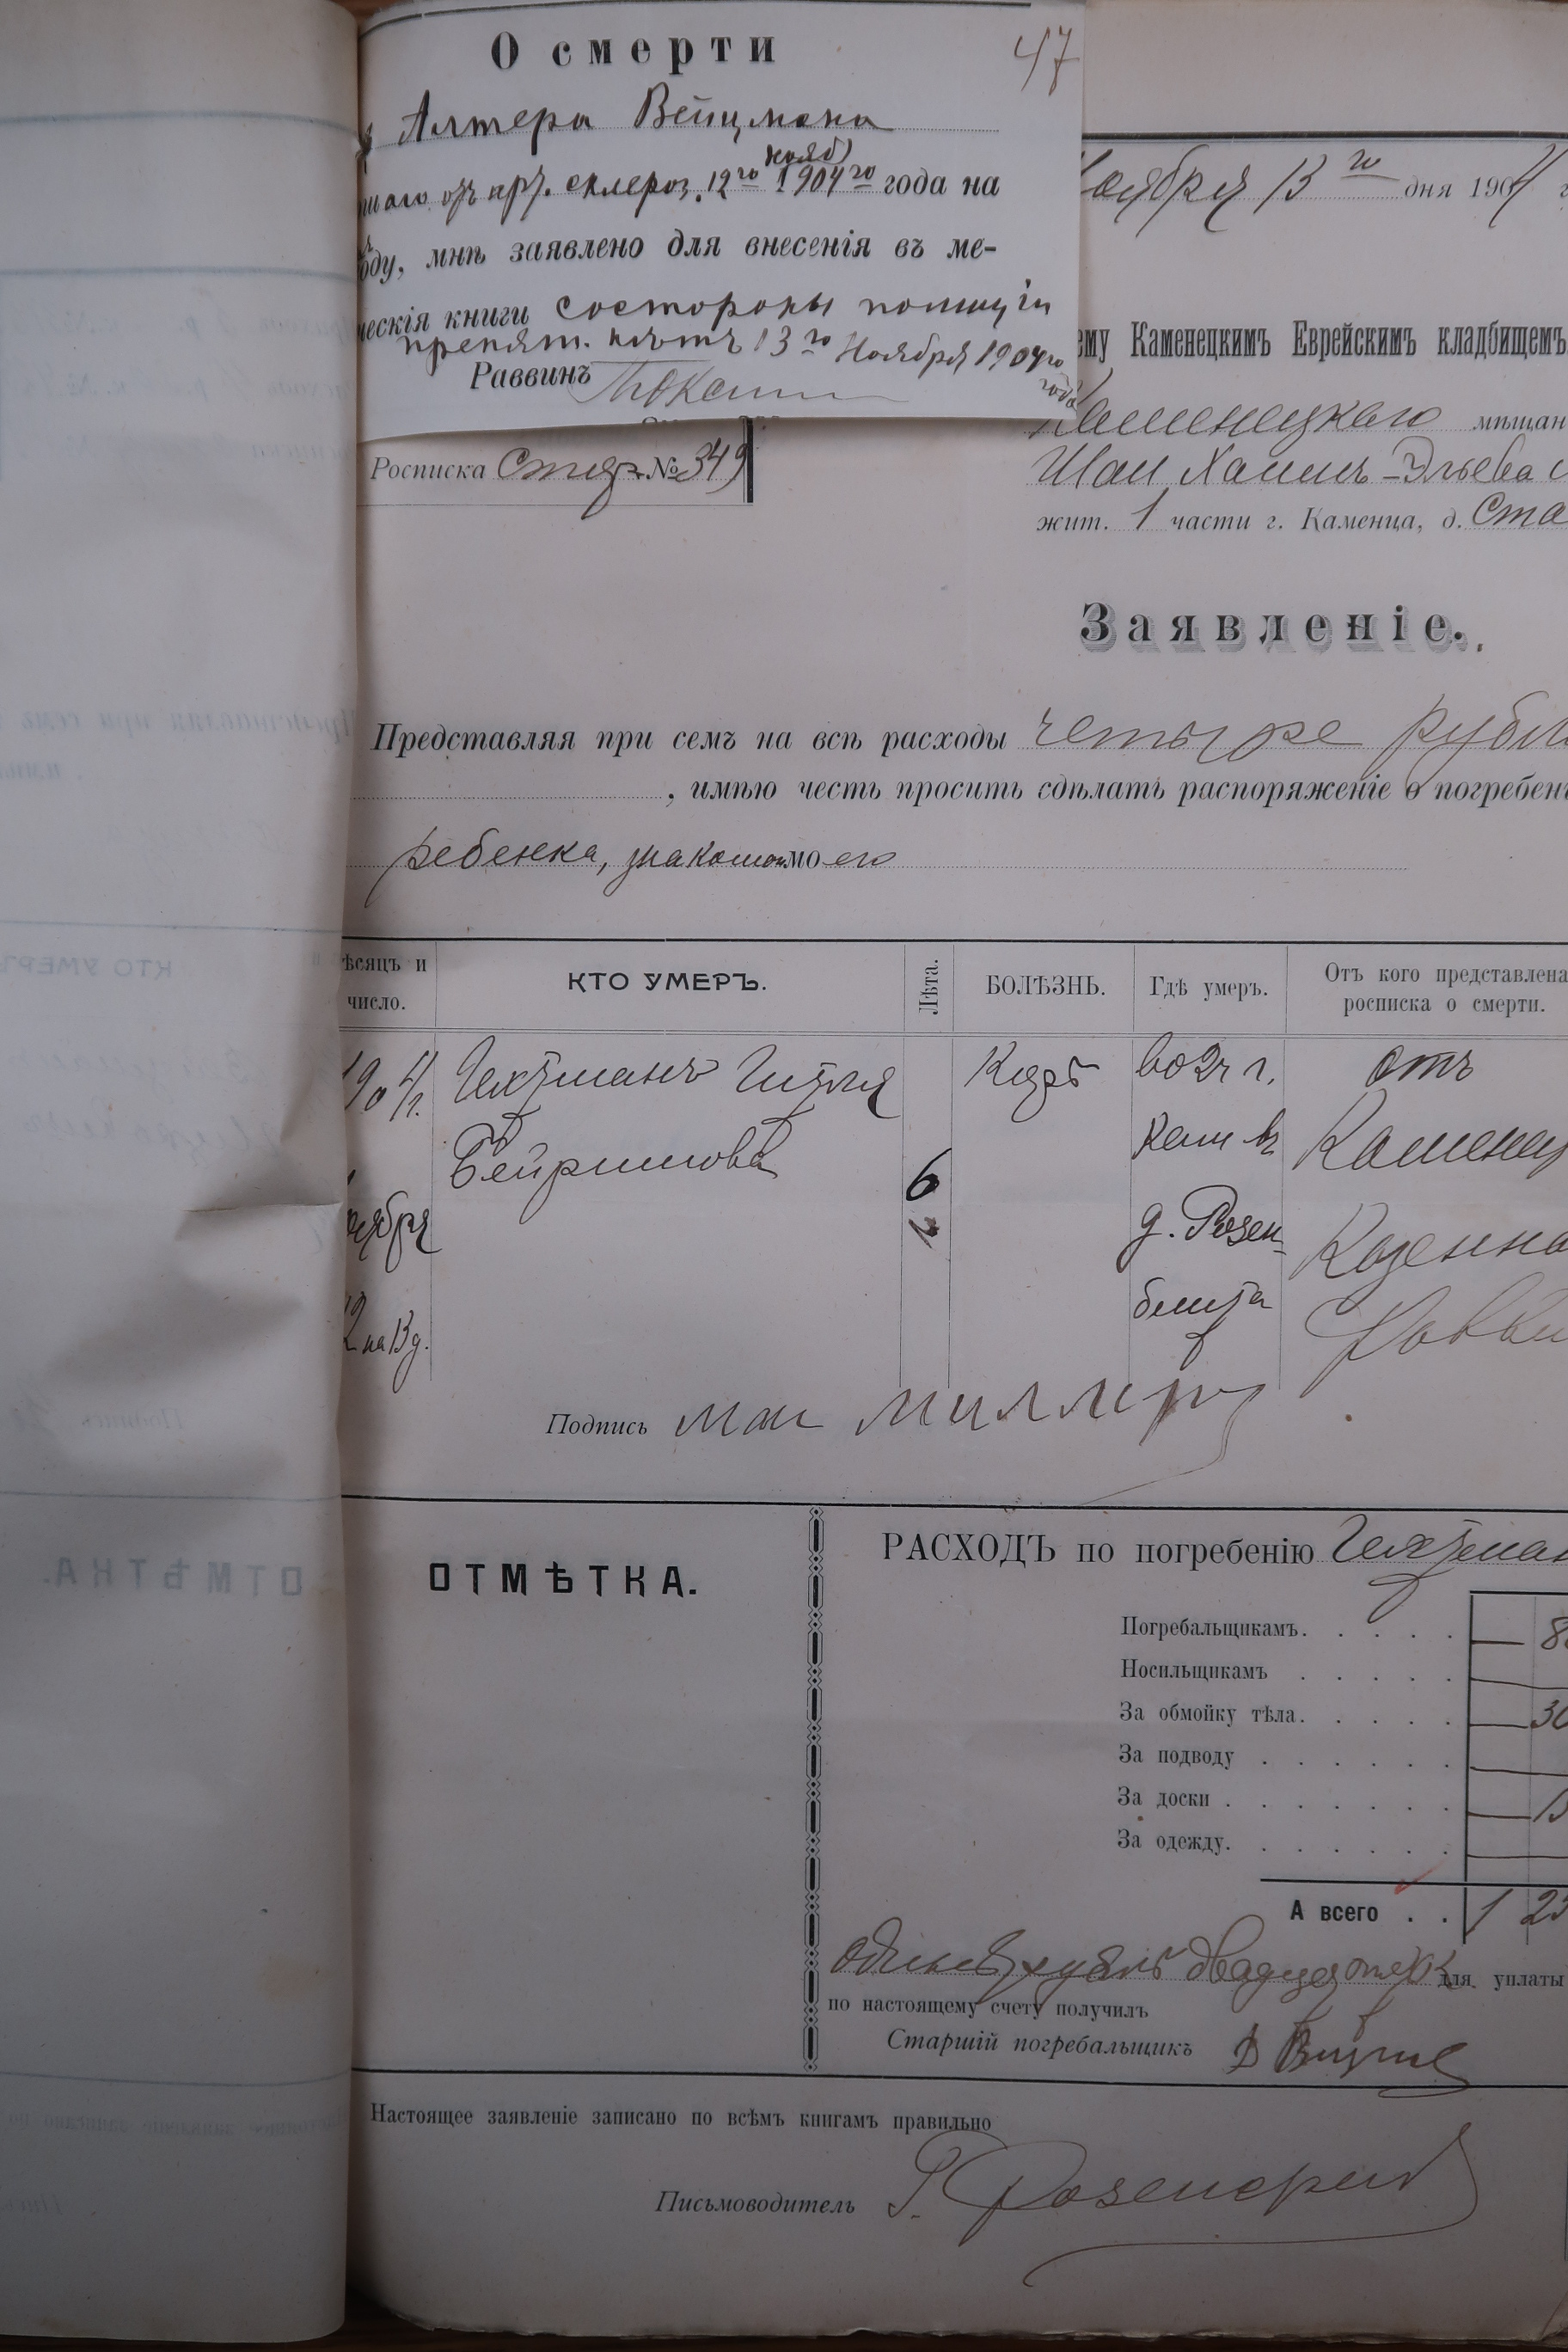 О смерти
47
Алтера Вейцмана
нояб
шаго отъ
склероз. 12го 1904го года на
оду, мнѣ заявлено для внесенія въ ме-
ческія книги состороны полиціи
препят. нѣтъ 13го Ноября 1904го
года
Раввинъ
Росписка Стар №349
Ноября 13го дня 1904 г
ему Каменецкимъ Еврейскимъ кладбищемъ
Каменецкаго мѣщан
Хаимъ-Эльева
жит. 1 части г. Каменца, д. Ста
Заявленіе.
Представляя при семъ на всѣ расходы четыре рубл
, имѣю честь просить сдѣлать распоряженіе о погребен
ребенка, знакомомоего
ѣсяцъ и
число.
КТО УМЕРЪ.
Лѣта.
БОЛѢЗНЬ.
Гдѣ умеръ.
Отъ кого представлена
росписка о смерти.
1904 г.
ноября
12 на 13 д.
Гехтманъ
6
Корь
во 2ч г.
Кам въ
д. Розен-
блита
отъ
Каменец
Казенна
Равви
Подпись Шаи Миллеръ
ОТМѢТКА.
РАСХОДЪ по погребенію Гехтман
Погребальщикамъ. — 8
Носильщикамъ
За обмойку тѣла. — 30
За подводу
За доски — 15
За одежду.
А всего 1 25
рубль двадцать для уплаты
по настоящему счету получилъ
Старшій погребальщикъ
Настоящее заявленіе записано по всѣмъ книгамъ правильно
Письмоводитель
ОТМѢТКА.
КТО УМЕРЪ